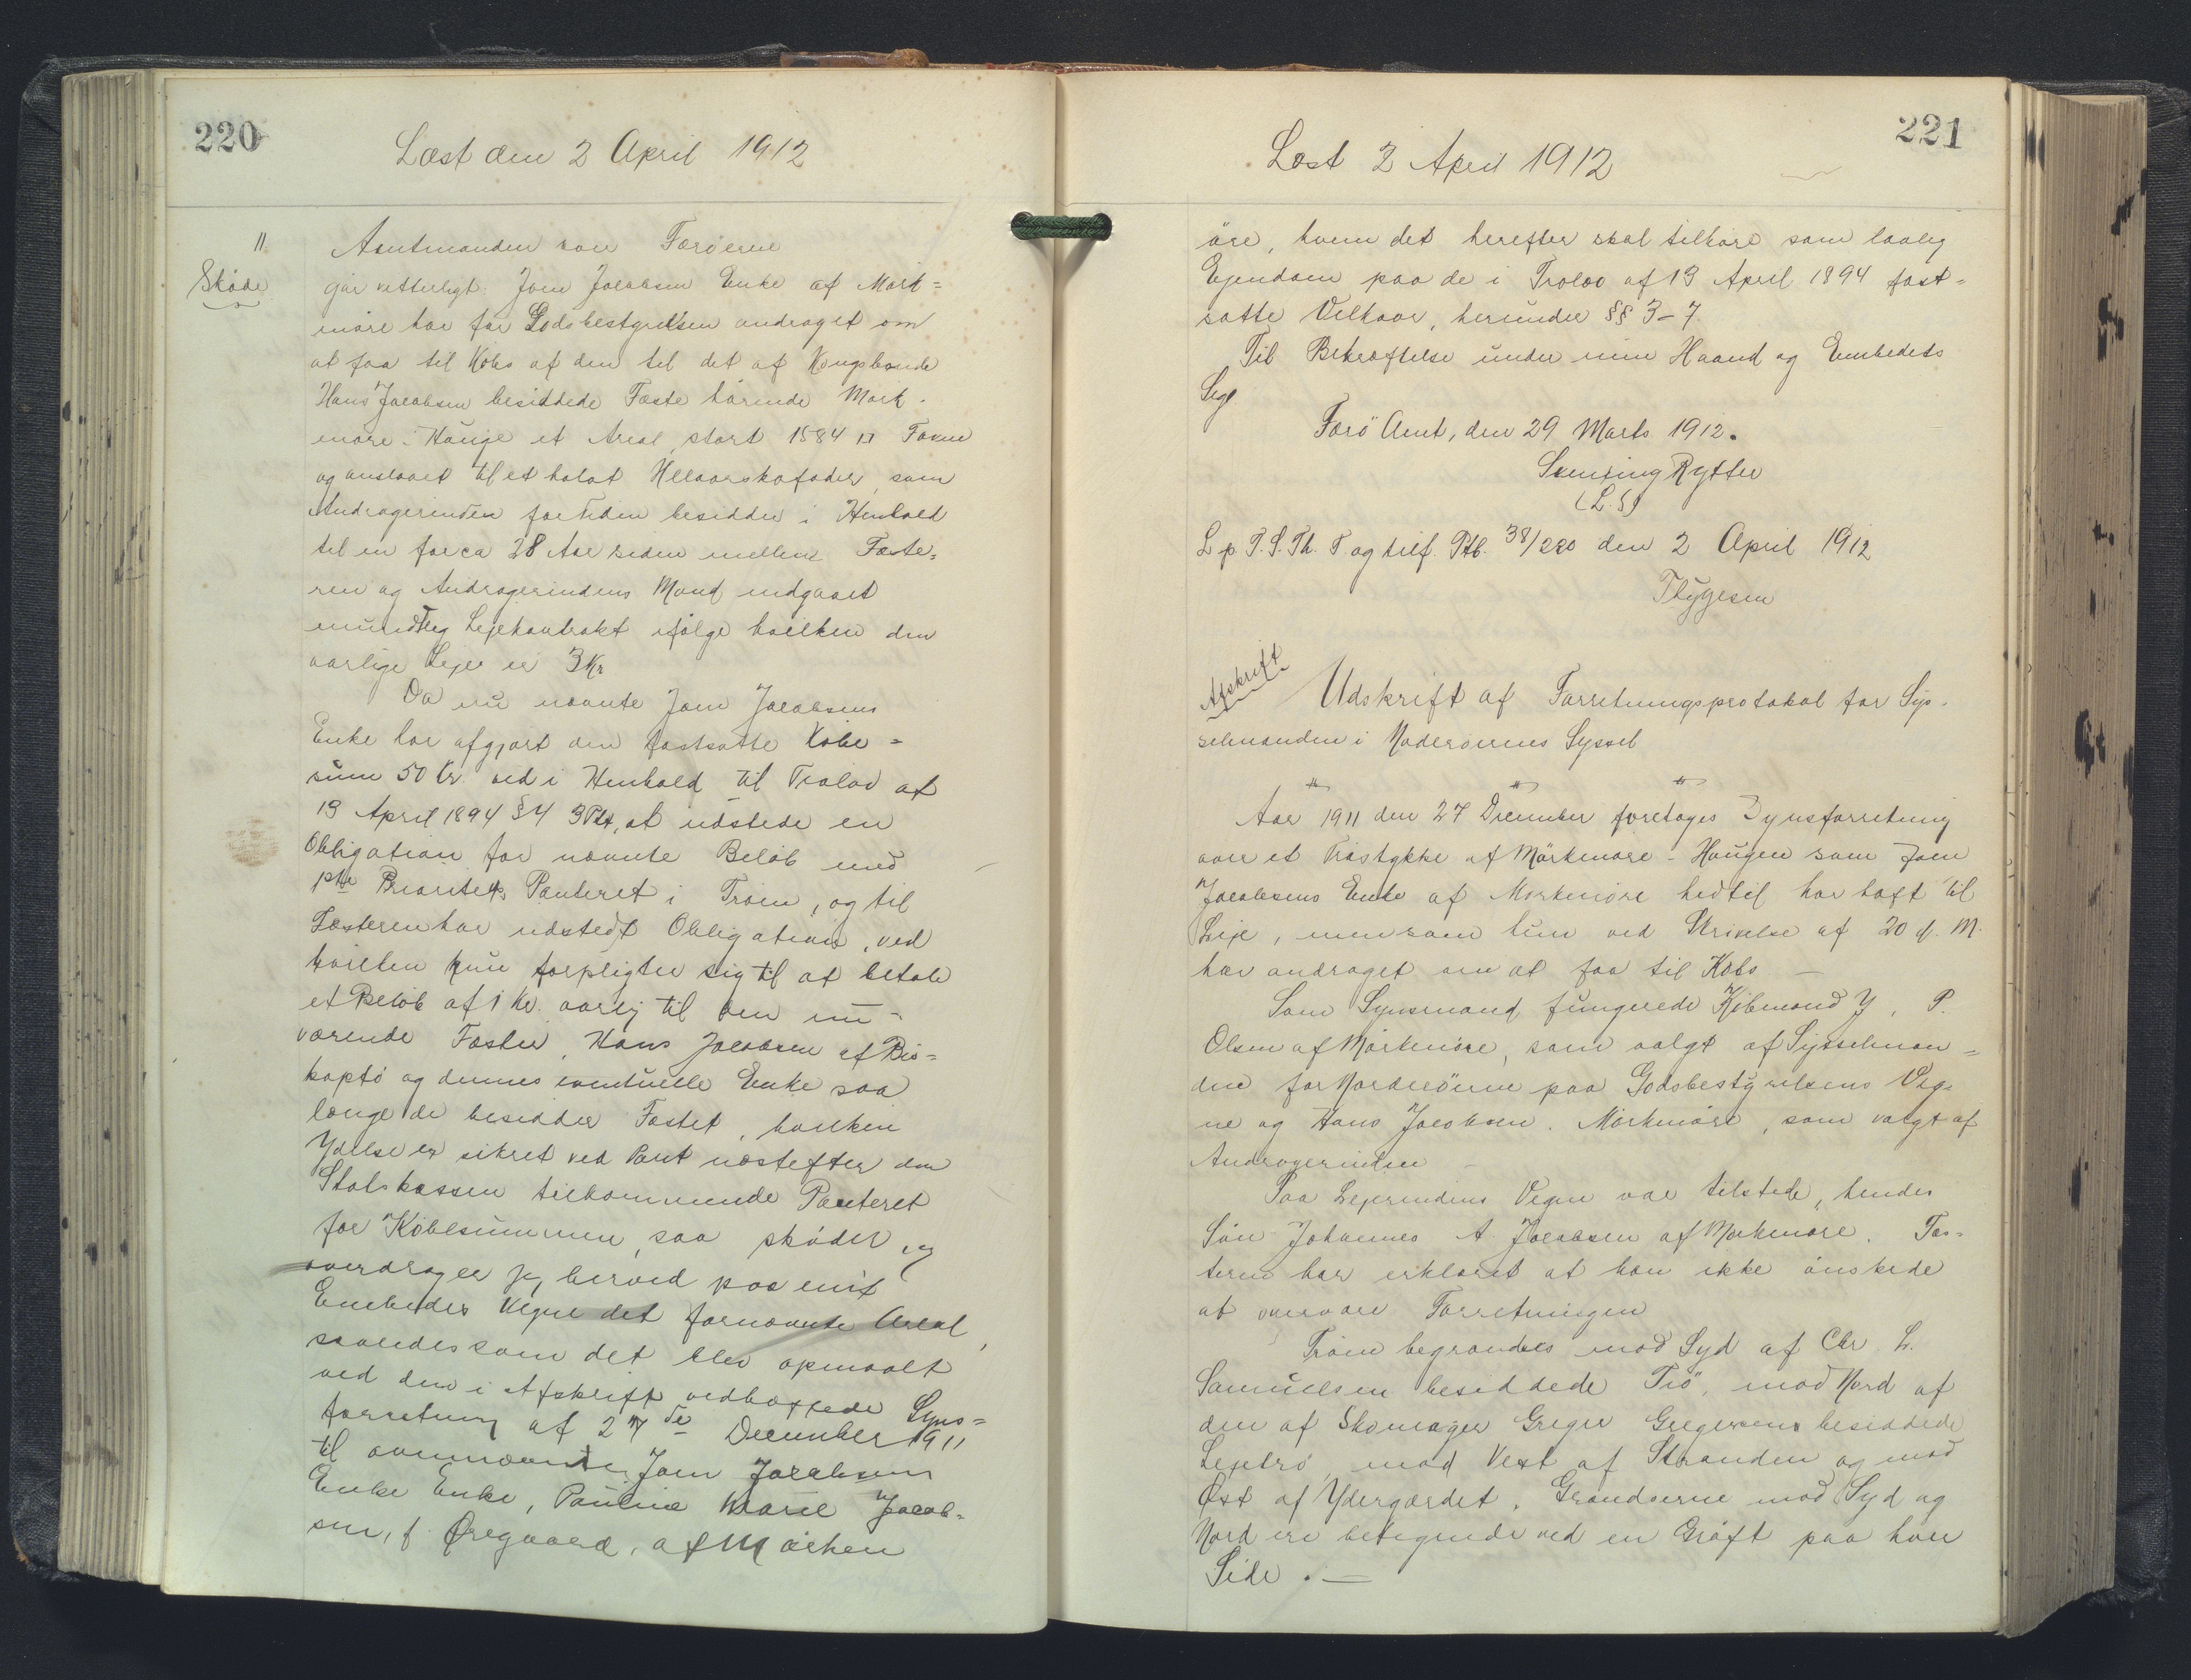 220
Læst den 2 April 1912
11.
Skøde
Amtmanden over Færøerne
gør vitterligt: Joen Jacobsen Enke af Mørk=
møre har for Godsbestyrelsen andraget om
at faa til Købs af den til det af Kongsbonde
Hans Jacobsen besiddede Fæste hørende Mørk-
møre-Hauge et Areal, stort 1584 □ Favne
og anslaaet til et halvt Helaarskofoder, som
Andragerinden for Tiden besidder i Henhold
til en for ca 28 Aar siden mellem Fæste=
ren og Andragerindens Mand indgaaet
mundtlig Lejekontrakt ifølge hvilken den
aarlige Leje er 3 Kr
Da nu nævnte Joen Jacobsens
Enke har afgjort den fastsatte Købe=
sum 50 Kr. ved i Henhold til Trælov af
13 April 1894 § 4 3 Pkt, at udstede en
Obligation for nævnte Beløb med
1ste Prioritets Panteret i Trøen, og til
Fæsteren har udstedt Obligation, ved
hvilken hun forpligter sig til at betale
et Beløb af 1 Kr. aarlig til den nu-
værende Fæster, Hans Jacobsen af Bis=
koptø og dennes eventuelle Enke saa
længe de besidder Fæstet, hvilken
Ydelse er sikret ved Pant næstefter den
Statskassen tilkommende Panteret
for Købesummen, saa skøder og
overdrager jeg herved paa mit
Embedes Vegne det fornævnte Areal,
saaledes som det blev opmaalt
ved den i Afskrift vedhæftede Syns=
forretning af 27de December 1911
til ovennævnte Joen Jacobsens
Enke Enke, Pauline Marie Jacob=
sen, f. Øregaard, af Mørken
221
Læst 2 April 1912
øre, hvem det herefter skal tilhøre som lovlig
Ejendom paa de i Trælov af 13 April 1894 fast=
satte Vilkaar, herunder §§ 3-7.
Til Bekræftelse under min Haand og Embedets
Segl.
Færø Amt, den 29 Marts 1912.
Svenning Rytter
(L.S)
L. p. F. S. Th. T. og tilf. Ptb. 38/220 den 2 April 1912
Thygesen
Afskrift
Udskrift af Forretningsprotokol for Sys-
selmanden i Norderøernes Syssel
Aar 1911 den 27 December foretoges Synsforretning
over et Trøstykke af Mørkmøre-Haugen som Joen
Jacobsens Enke af Mørkmøre hidtil har haft til
Leje, men som hun ved Skrivelse af 20 d. M.
har andraget om at faa til Købs —
Som Synsmand fungerede Købmand J. P.
Olsen af Mørkmøre, som valgt af Sysselman=
den for Norderøerne paa Godsbestyrelsens Veg-
ne og Hans Jacobsen. Mørkmøre, som valgt af
Andragerinden —
Paa Lejerindens Vegne var tilstede, hendes
Søn Johannes A Jacobsen af Mørkmøre. Fæs-
teren har erklæret at han ikke ønskede
at overvære Forretningen
Trøen begrændses mod Syd af Chr. L.
Samuelsen besiddede Trø, mod Nord af
den af Skomager Greger Gregersens besiddede
Lejetrø, mod Vest af Stranden og mod
Øst af Ydergærdet. Grændserne mod Syd og
Nord ere betegnede ved en Grøft paa hver
Side. —